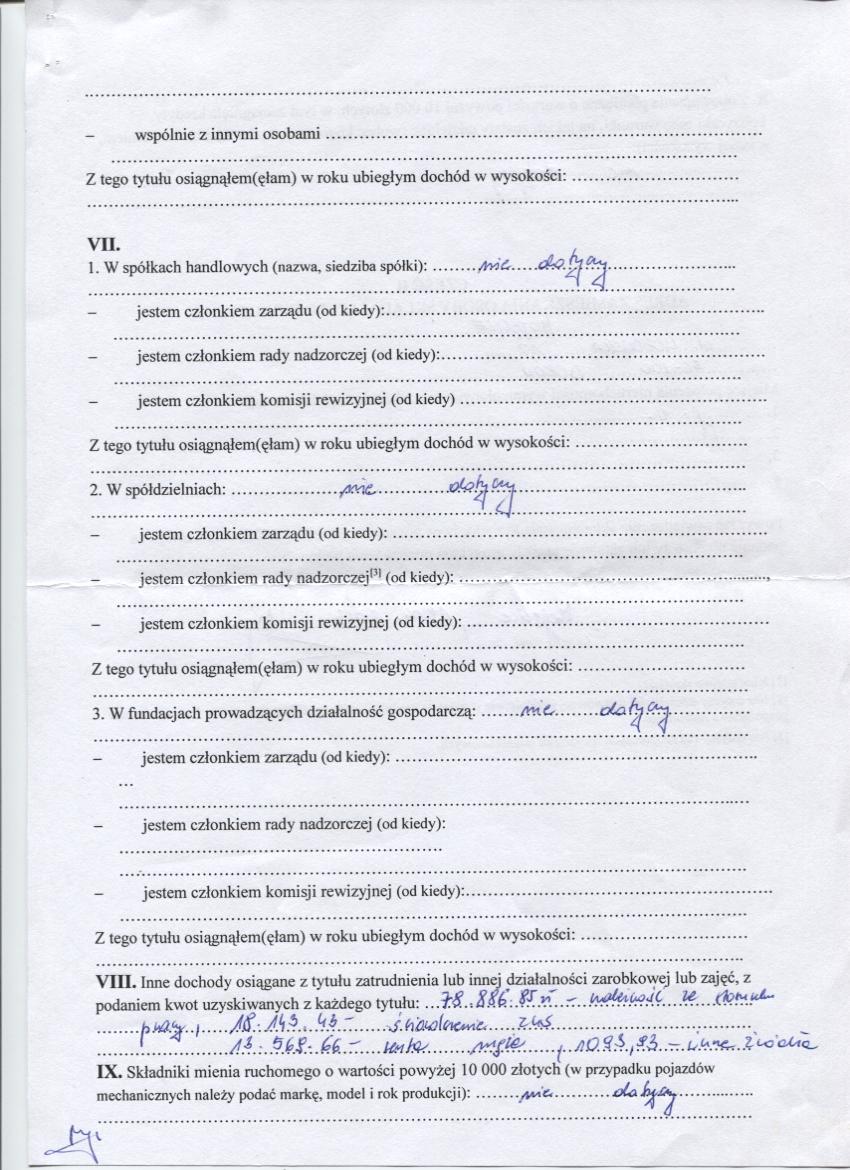 – wspólnie z innymi osobami
Z tego tytułu osiągnąłem(ęłam) w roku ubiegłym dochód w wysokości:
VII.
1. W spółkach handlowych (nazwa, siedziba spółki): nie dotyczy
– jestem członkiem zarządu (od kiedy):
– jestem członkiem rady nadzorczej (od kiedy):
– jestem członkiem komisji rewizyjnej (od kiedy)
Z tego tytułu osiągnąłem(ęłam) w roku ubiegłym dochód w wysokości:
2. W spółdzielniach: nie dotyczy
– jestem członkiem zarządu (od kiedy):
– jestem członkiem rady nadzorczej[3] (od kiedy):
– jestem członkiem komisji rewizyjnej (od kiedy):
Z tego tytułu osiągnąłem(ęłam) w roku ubiegłym dochód w wysokości:
3. W fundacjach prowadzących działalność gospodarczą: nie dotyczy
– jestem członkiem zarządu (od kiedy):
– jestem członkiem rady nadzorczej (od kiedy):
– jestem członkiem komisji rewizyjnej (od kiedy):
Z tego tytułu osiągnąłem(ęłam) w roku ubiegłym dochód w wysokości:
VIII. Inne dochody osiągane z tytułu zatrudnienia lub innej działalności zarobkowej lub zajęć, z
podaniem kwot uzyskiwanych z każdego tytułu: 78.886.85 zł – należność ze stosunku
pracy, 18.143.43 – świadczenie ZUS
13.569.66 – renta, 1093,93 – inne źródła
IX. Składniki mienia ruchomego o wartości powyżej 10 000 złotych (w przypadku pojazdów
mechanicznych należy podać markę, model i rok produkcji): nie dotyczy